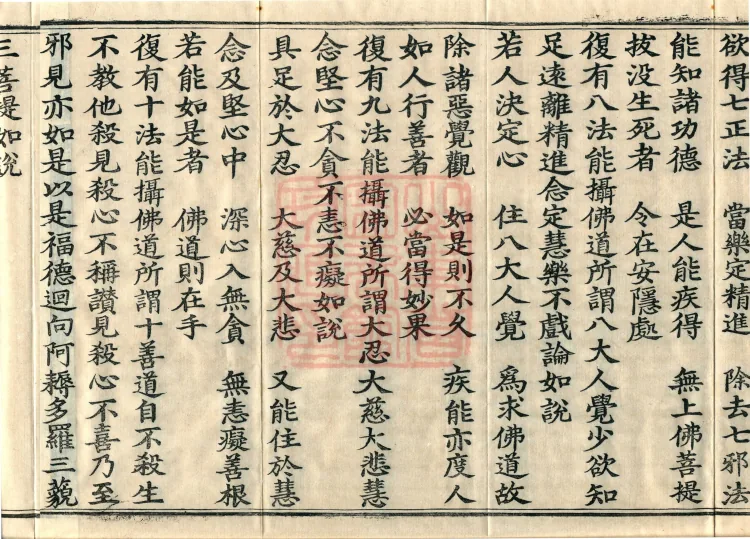 欲得七正法　當樂定精進　除去七邪法
能知諸功德　是人能疾得　無上佛菩提
拔没生死者　令在安隱處
復有八法能攝佛道所謂八大人覺少欲知
足遠離精進念定慧樂不戲論如說
若人決定心　住八大人覺　爲求佛道故
除諸惡覺觀　如是則不久　疾能亦度人
如人行善者　必當得妙果
復有九法能攝佛道所謂大忍大慈大悲慧
念堅心不貪不恚不癡如說
具足於大忍　大慈及大悲　又能住於慧
念及堅心中　深心入無貪　無恚癡善根
若能如是者　佛道則在手
復有十法能攝佛道所謂十善道自不殺生
不教他殺見殺心不稱讃見殺心不喜乃至
邪見亦如是以是福德迴向阿耨多羅三藐
三菩提如說